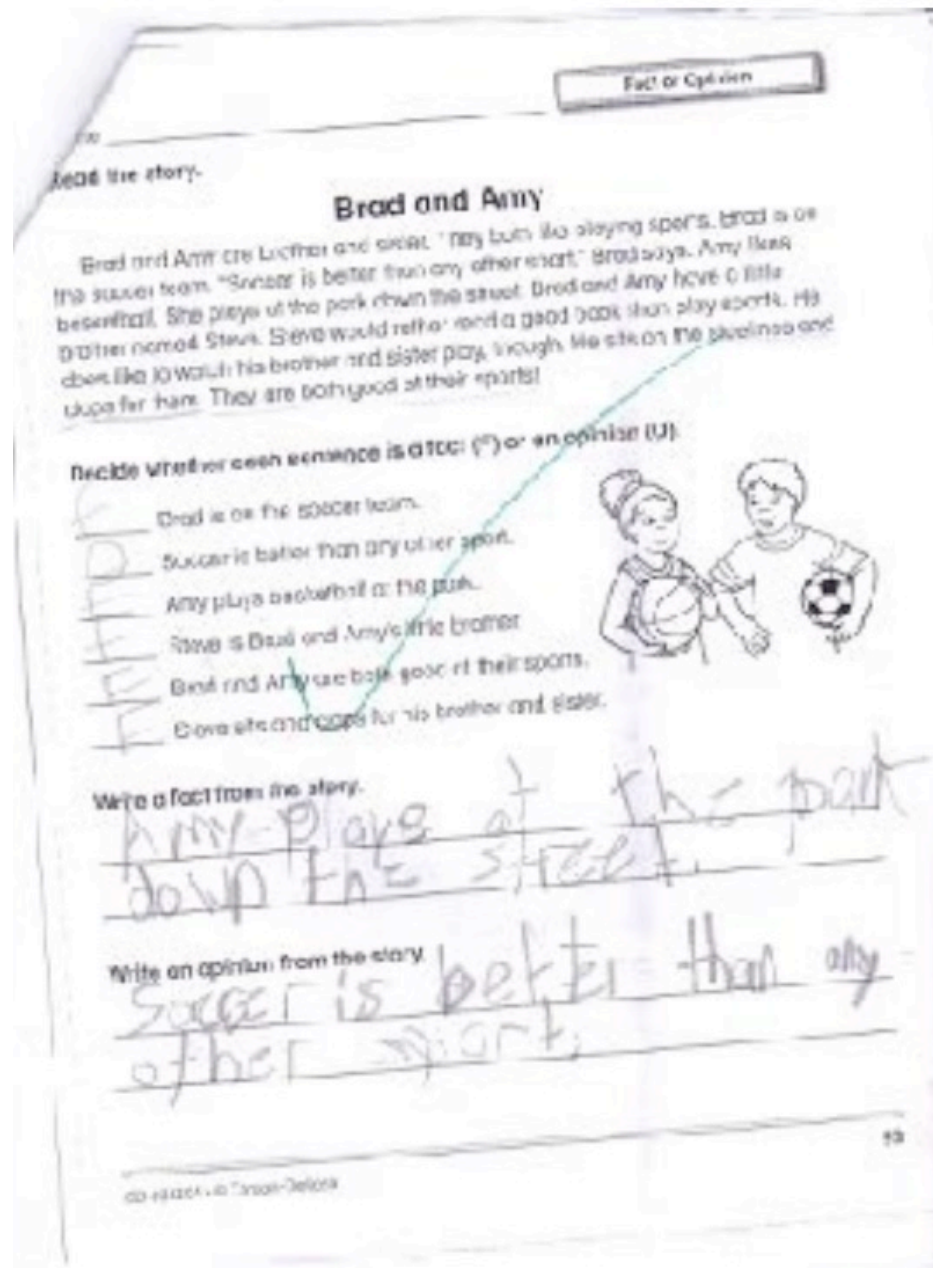 Fact or Opinion
Read the story.
Brad and Amy
Brad and Amy are brother and sister. They both like playing sports. Brad is on
the soccer team. "Soccer is better than any other sport," Brad says. Amy likes
basketball. She plays at the park down the street. Brad and Amy have a little
brother named Steve. Steve would rather read a good book than play sports. He
does like to watch his brother and sister play, though. He sits on the sidelines and
claps for them. They are both good at their sports!
Decide whether each sentence is a fact (F) or an opinion (O).
F Brad is on the soccer team.
O Soccer is better than any other sport.
F Amy plays basketball at the park.
F Steve is Brad and Amy's little brother.
F Brad and Amy are both good at their sports.
F Steve sits and claps for his brother and sister.
Write a fact from the story.
Amy plays at the park
down the street.
Write an opinion from the story.
Soccer is better than any
other sport.
© Carson-Dellosa